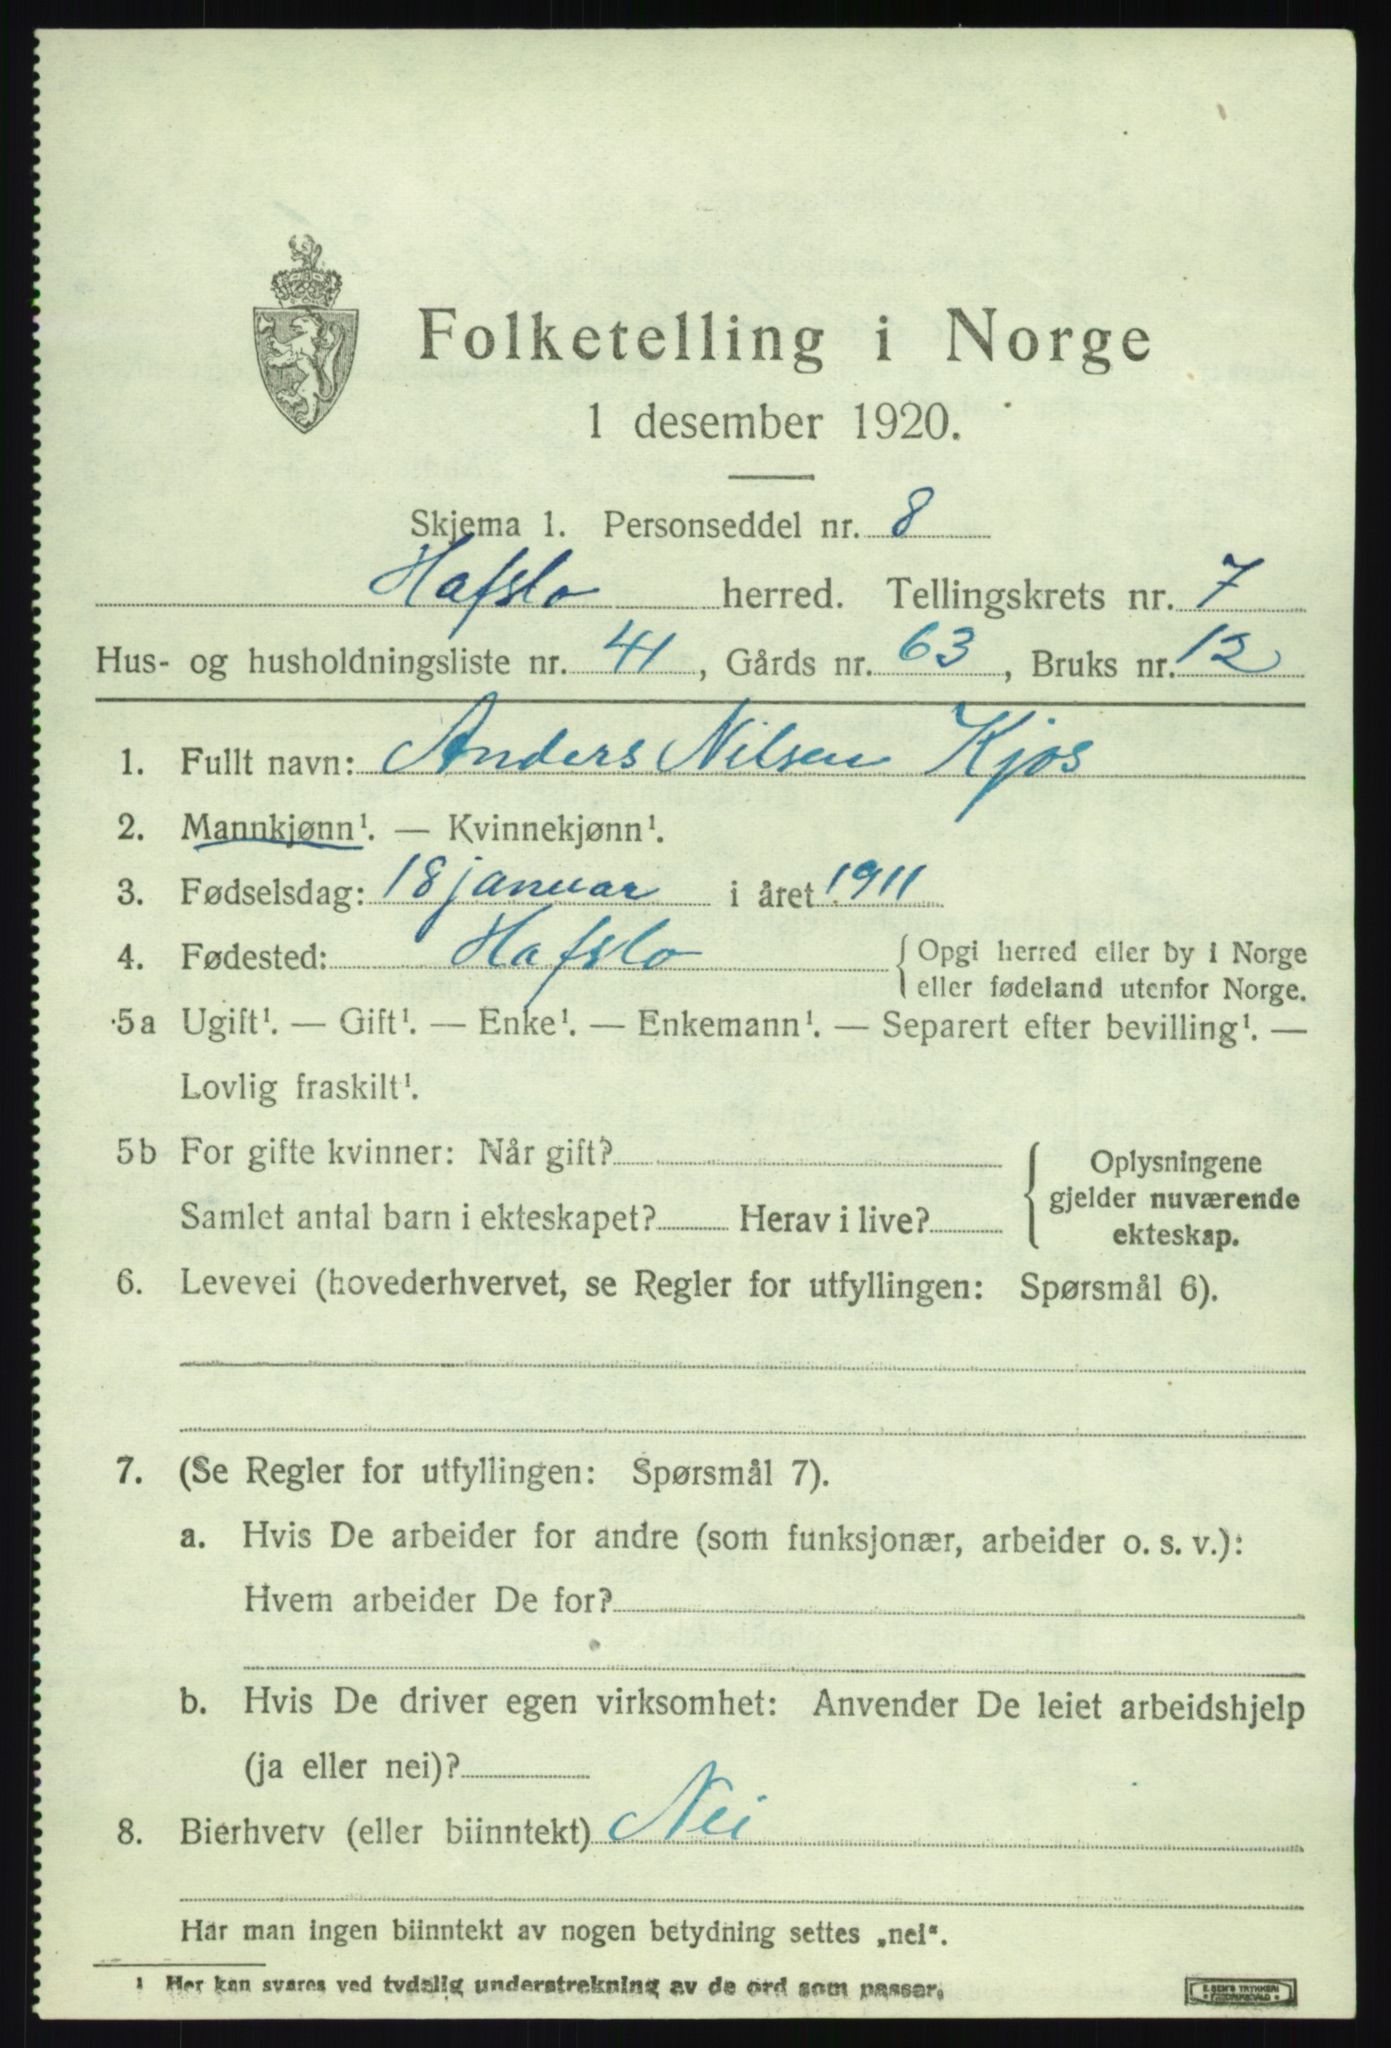 Folketelling i Norge
1 desember 1920.
Skjema 1. Personseddel nr. 8
Hafslo herred. Tellingskrets nr. 7
Hus- og husholdningsliste nr. 41, Gårds nr. 63, Bruks nr. 12
1. Fullt navn: Anders Nilsen Kjos
2. Mannkjønn¹. — Kvinnekjønn¹.
3. Fødselsdag: 18 januar i året 1911
4. Fødested: Hafslo { Opgi herred eller by i Norge
eller fødeland utenfor Norge.
5a Ugift¹. — Gift¹. — Enke¹. — Enkemann¹. — Separert efter bevilling¹. —
Lovlig fraskilt¹.
5b For gifte kvinner: Når gift?
Samlet antal barn i ekteskapet? Herav i live?
Oplysningene
gjelder nuværende
ekteskap.
6. Levevei (hovederhvervet, se Regler for utfyllingen: Spørsmål 6).
7. (Se Regler for utfyllingen: Spørsmål 7).
a. Hvis De arbeider for andre (som funksjonær, arbeider o. s. v.):
Hvem arbeider De for?
b. Hvis De driver egen virksomhet: Anvender De leiet arbeidshjelp
(ja eller nei)?
8. Bierhverv (eller biinntekt) Nei
Har man ingen biinntekt av nogen betydning settes „nei“.
¹ Her kan svares ved tydelig understrekning av de ord som passer.